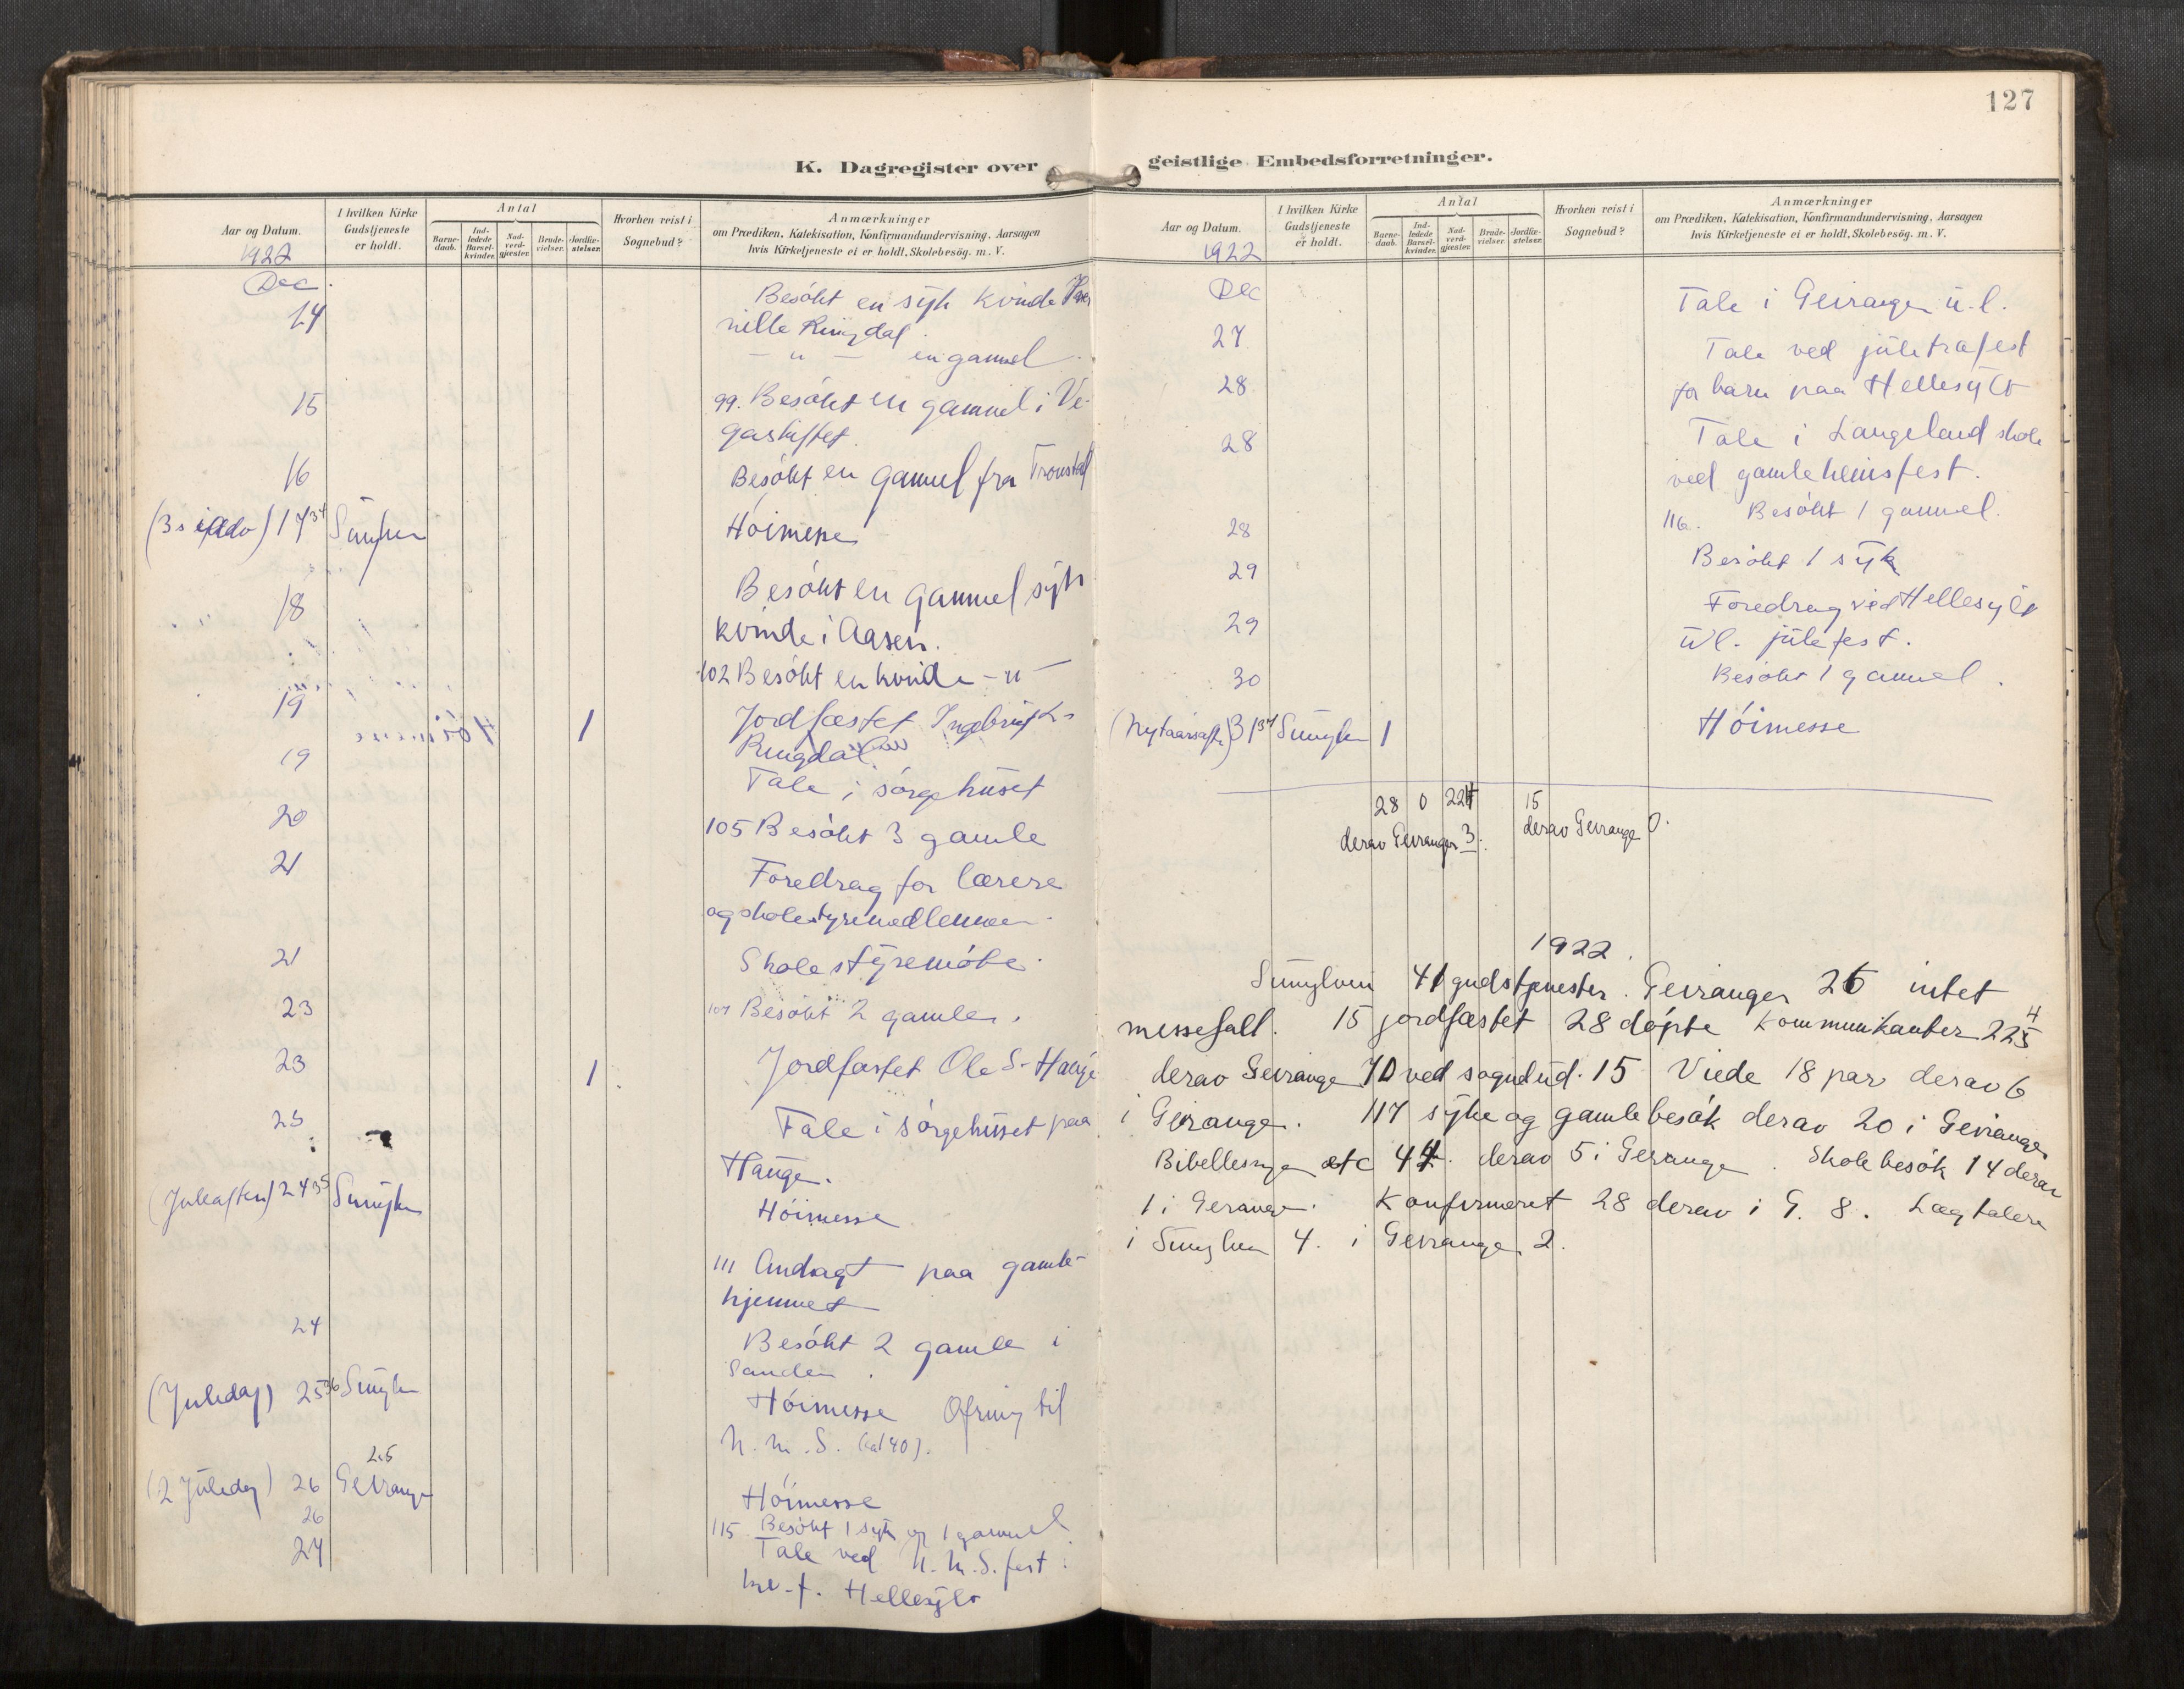 K. Dagregister over
Aar og Datum.
1922
I hvilken Kirke Gudstjeneste er holdt.
Antal
Barne-daab.
Ind-ledede Barsel-kvinder.
Nad-verd-gjæster.
Brude-vielser.
Jordfæ-stelser.
Hvorhen reist i Sognebud?
Anmærkninger
om Prædiken, Katekisation, Konfirmandundervisning, Aarsagen
hvis Kirketjeneste ei er holdt, Skolebesög. m. V.
Dec.
14 Besökt en syk kvinde Per
nille Ringdal.
— " — en gammel
15 99. Besökt en gammel i Ve-
gaskiftet.
16 Besökt en gammel fra Tronstad
(3 s i adv) 17 34 Sunylven Höimesse
18 Besökt en gammel syk
kvinde i Aasen.
102 Besökt en kvinde — " —
19 1 Jordfæstet Ingebrigt L.
Ringdal
19 Tale i sörgehuset
20 105 Besökt 3 gamle
21 Foredrag for lærere
og skolestyremedlemmer.
21 Skolestyremöte.
23 107 Besökt 2 gamle.
23 1 Jordfæstet Ole S. Hauge
23 Tale i sörgehuset paa
Hauge.
(Juleaften) 24 35 Sunylven Höimesse
111 Andagt paa gamle-
hjemmet
24 Besökt 2 gamle i
Sanden.
(Juledag) 25 36 Sunylven Höimesse Ofring til
N. M. S. (kal 40).
(2 Juledag) 26 Geiranger 25 Höimesse
26 115 Besökt 1 syk og 1 gammel
27 Tale ved N. M. S. fest
kv.f. Hellesylt
127
geistlige Embedsforretninger.
Aar og Datum.
1922
I hvilken Kirke Gudstjeneste er holdt.
Antal
Barne-daab.
Ind-ledede Barsel-kvinder.
Nad-verd-gjæster.
Brude-vielser.
Jordfæ-stelser.
Hvorhen reist i Sognebud?
Anmærkninger
om Prædiken, Katekisation, Konfirmandundervisning, Aarsagen
hvis Kirketjeneste ei er holdt, Skolebesög. m. V.
Dec Tale i Geiranger u.l.
27 Tale ved juletrefest
28 for barn paa Hellesylt
28 Tale i Langeland skole
ved gamleheimsfest.
28 116. Besökt 1 gammel.
29 Besökt 1 syk
29 Foredrag ved Hellesylt
ul. julefest.
30 Besökt 1 gammel.
(Nytaarsaft) 31 37 Sunylven 1 Höimesse
28 0 224 15
derav Geiranger 3. derav Geiranger 0.
1922.
Sunylven 41 gudstjenester. Geiranger 25 intet
messefall. 15 jordfæstet 28 döpte Kommunikanter 224
derav Geiranger 70 ved sognebud. 15 Viede 18 par derav 6
i Geiranger. 117 syke og gamlebesök derav 20 i Geiranger
Bibellesninger etc 44. derav 5 i Geiranger. Skolebesök 14 derav
1 i Geiranger. Konfirmeret 28 derav i G. 8. Lægtalere
i Sunylven 4. i Geiranger 2.